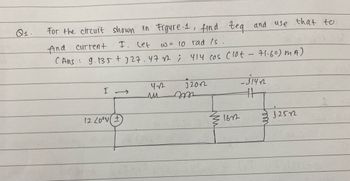 Q1. For the circuit shown in Figure 1, find Zeq and use that to
find current I. Let ω = 10 rad/s.
(Ans: 9.135 + j27.47 Ω ; 414 cos (10t - 71.6°) mA)
I →
4Ω
j20Ω
-j14Ω
12 ∠0° V
16Ω
j25Ω